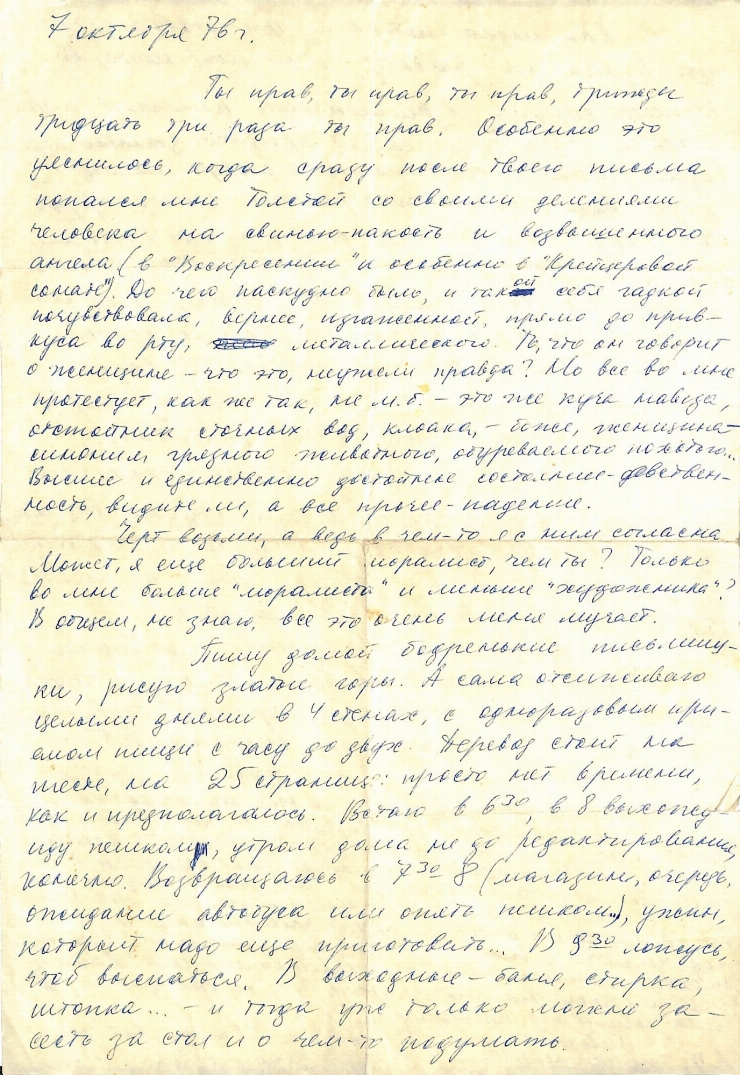 7 октября 76 г.
Ты прав, ты прав, ты прав, трижды
тридцать три раза ты прав. Особенно это
уяснилось, когда сразу после твоего письма
попался мне Толстой со своими делениями
человека на свинью-пакость и возвышенного
ангела (в "Воскресении" и особенно в "Крейцеровой
сонате"). До чего паскудно было, и такой себя гадкой
почувствовала, вернее, изгаженной, прямо до прив-
куса во рту, металлического. То, что он говорит
о женщине – что это, неужели правда? Но все во мне
протестует, как же так, не м.б. – это же куча навоза,
отстойник сточных вод, клоака, – боже, женщина –
синоним грязного животного, обуреваемого похотью...
Высшее и единственно достойное состояние – девствен-
ность, видите ли, а все прочее – падение.
Черт возьми, а ведь в чем-то я с ним согласна
Может, я еще больший моралист, чем ты? Только
во мне больше "моралиста" и меньше "художника"?
В общем, не знаю, все это очень меня мучает.
Пишу домой бодренькие письмишу-
ки, рисую златые горы. А сама отсиживаю
целыми днями в 4 стенах, с одноразовым при-
емом пищи с часу до двух. Перевод стоит на
месте, на 25 странице: просто нет времени,
как и предполагалось. Встаю в 6 30, в 8 выхожу –
иду пешком, утром дома не до редактирования,
конечно. Возвращаюсь в 7 30 8 (магазин, очередь,
ожидание автобуса или опять пешком..), ужин,
который надо еще приготовить... В 9 30 ложусь,
чтоб выспаться. В выходные – баня, стирка,
штопка... – и тогда уж только можно за-
сесть за стол и о чем-то подумать.